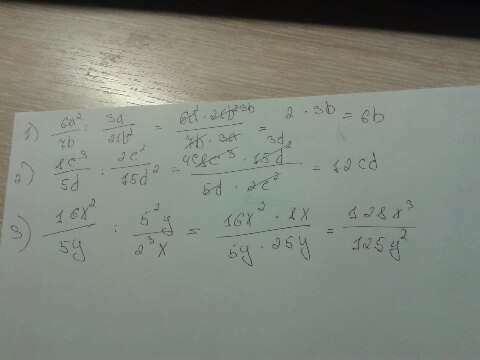 1) 6a²/7b : 3a/21b² = 6a² · 21b² 3b / 7b · 3a = 2 · 3b = 6b
2) 8c³/5d : 2c²/15d² = 4c 8c³ · 15d² 3d / 5d · 2c² = 12cd
3) 16x²/5y : 5²y/2³x = 16x² · 8x / 5y · 25y = 128x³/125y²